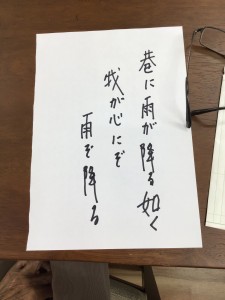 巷に雨が降る如く
我が心にぞ
雨ぞ降る